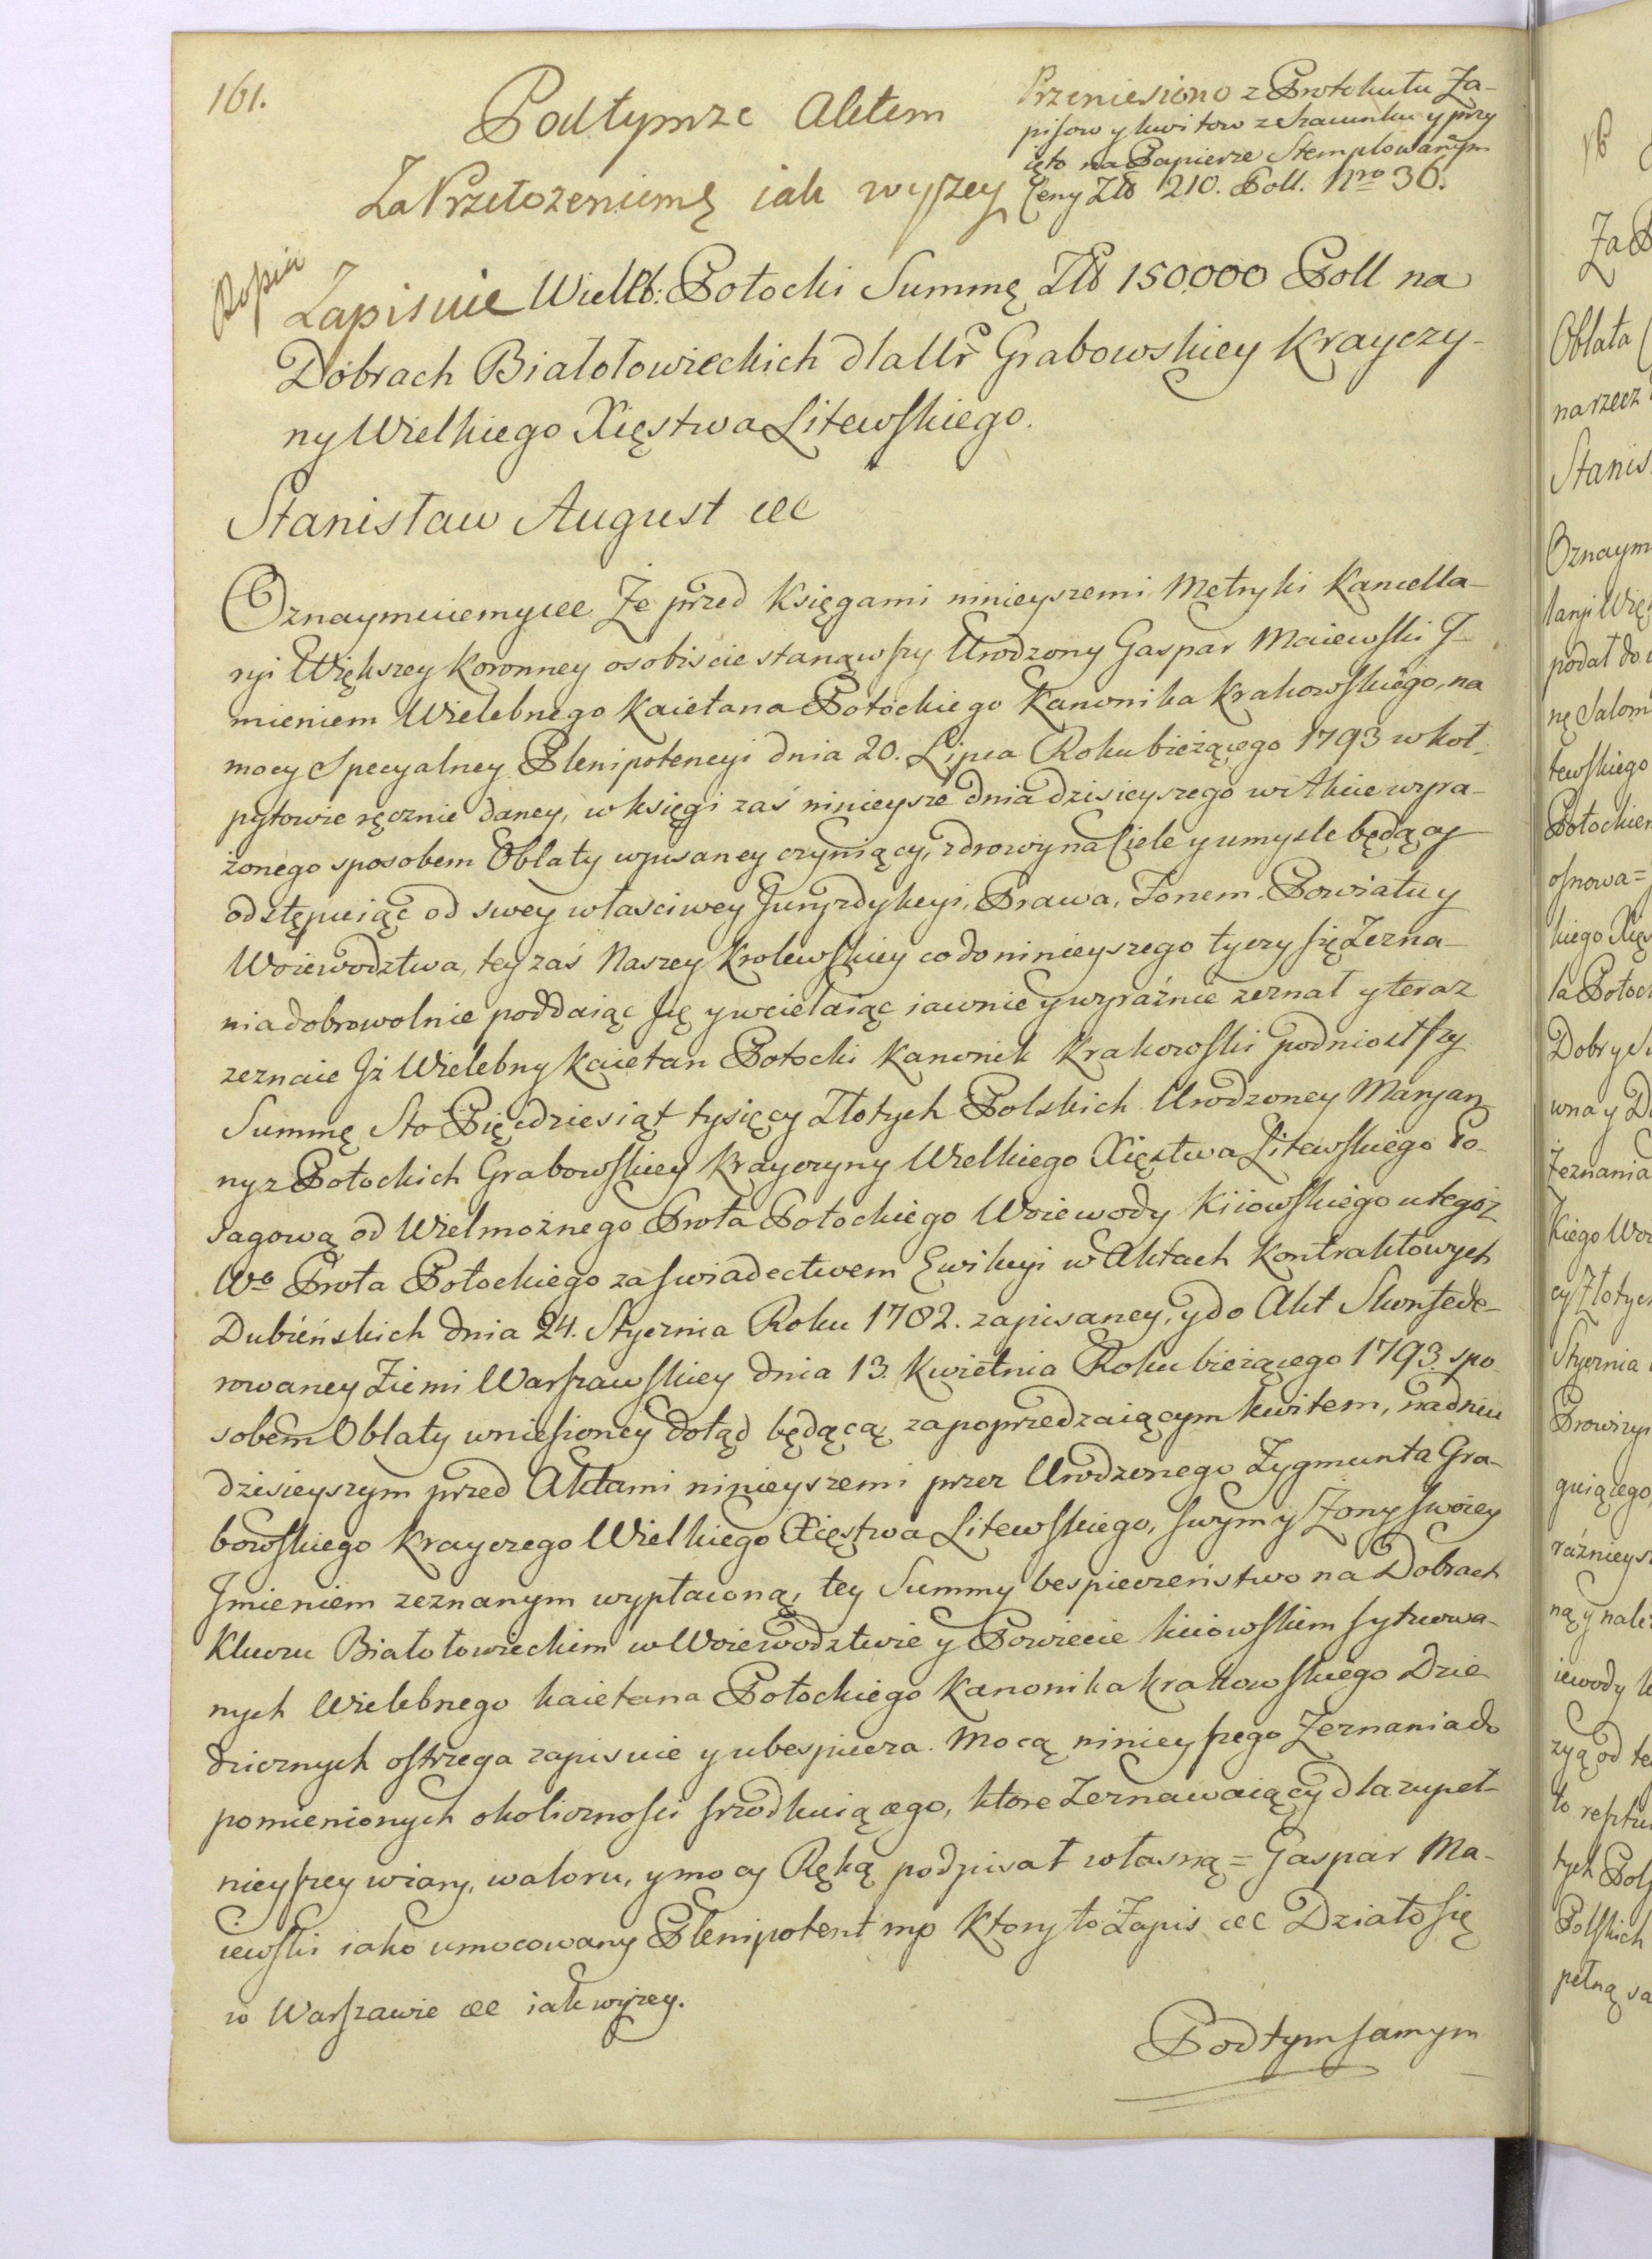 161.
Podtymze Aktem
Za Przełozeniemę iak wyszey
Przeniesiono z Protokułu Za-
pisow y kwitow z Szacunku y przy
ięto na Papierze Stemplowanym
Ceny Złł 210. Poll. Nro 36.
Zapisuie Wielb: Potocki Summę Złł 150.000 Poll na
Dobrach Białołowieckich dla Ur Grabowskiey Krayczy-
ny Wielkiego Xięstwa Litewskiego.
Stanisław August etc
Oznaymuiemy etc Że przed Księgami ninieyszemi Metryki Kancella-
ryi Większey Koronney osobiscie stanąwszy Urodzony Gaspar Maiewski J-
mieniem Wielebnego Kaietana Potockiego Kanonika Krakowskiego, na
mocy Specyalney Plenipotencyi dnia 20. Lipca Roku bieżącego 1793 w Koł-
pytowie ręcznie daney, w księgi zaś ninieysze dnia dzisieyszego w Akcie wyra-
żonego sposobem Oblaty wpisaney czyniący, zdrowy na Ciele y umysle będący
odstępuiąc od swey własciwey Juryzdykcyi, Prawa, Fonem. Powiatu y
Woiewodztwa, tey zaś Naszey Krolewskiey co do ninieyszego tyczy się Zezna-
nia dobrowolnie poddaiąc się y wcielaiąc iawnie y wyraźnie zeznał y teraz
zeznaie Iż Wielebny Kaietan Potocki Kanonik Krakowski podniosłszy
Summę Sto Pięćdziesiąt tysięcy Złotych Polskich Urodzoney Maryan-
ny z Potockich Grabowskiey Krayczyny Wielkiego Xięstwa Litewskiego Po-
sagową od Wielmożnego Prota Potockiego Woiewody Kiiowskiego u tegoż
Wo Prota Potockiego za swiadectwem Ewikcyi w Aktach Kontraktowych
Dubieńskich dnia 24. Stycznia Roku 1782. zapisaney, y do Akt Skonfede-
rowaney Ziemi Warszawskiey dnia 13. Kwietnia Roku bieżącego 1793. spo-
sobem Oblaty wniesioney dotąd będącą za poprzedzaiącym kwitem, na dniu
dzisieyszym przed Aktami ninieyszemi przez Urodzonego Zygmunta Gra-
bowskiego Krayczego Wielkiego Xięstwa Litewskiego, swym y Żony swoiey
Jmieniem zeznanym wypłaconą, tey Summy bespieczeństwo na Dobrach
Kluczu Białołowieckim w Woiewodztwie y Powiecie Kiiowskim sytuowa-
nych Wielebnego Kaietana Potockiego Kanonika Krakowskiego Dzie-
dzicznych ostrzega zapisuie y ubespiecza. Mocą ninieyszego Zeznania do
pomienionych okolicznosci srzodkuiącego, ktore Zeznawaiący dla zupeł-
nieyszey wiary, waloru, y mocy Ręką podpisał własną = Gaspar Ma-
iewski iako umocowany Plenipotent mp Ktory to Zapis etc Działo się
w Warszawie etc iak wyzey.
Pod tym samym